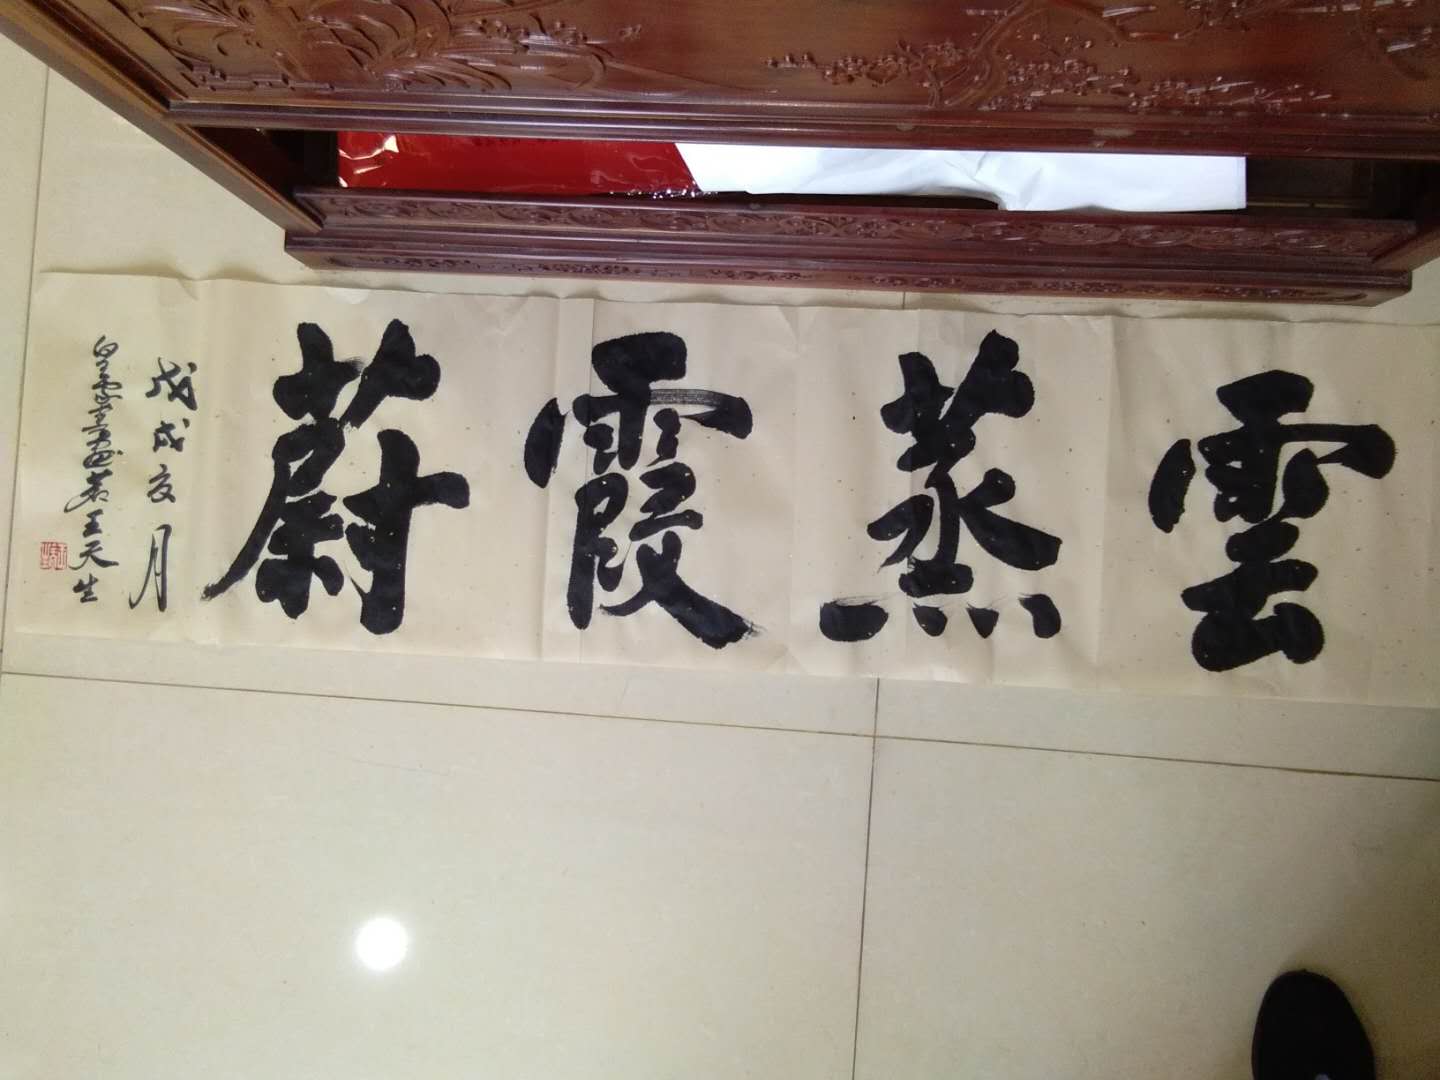 雲蒸霞蔚
戊戌亥月
王天生